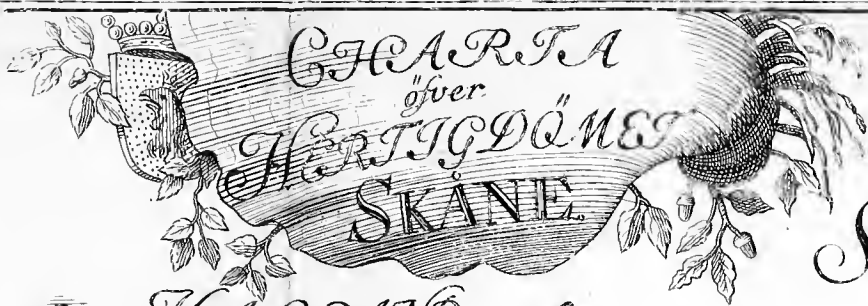 CHARTA
öfver
HERTIGDÖMET
SKÅNE.